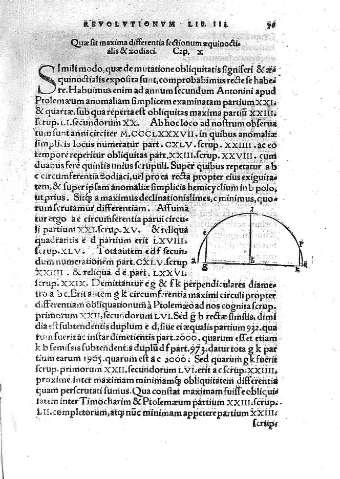 REVOLVTIONVM LIB. III.
Quæ sit maxima differentia sectionum æquinocti
alis & zodiaci. Cap. x
Simili modo, quæ de mutatione obliquitatis signiferi & æ
quinoctialis exposita sunt, comprobabimus recte se habe
re. Habuimus enim ad annum secundum Antonini apud
Ptolemæum anomaliam simplicem examinatam partium XXI.
& quartæ. sub qua reperta est obliquitas maxima partiũ XXIII.
scrup. LI. secundorum XX. Ab hoc loco ad nostram obserua
tum sunt anni circiter M.CCCLXXXVII. in quibus anomaliæ
simplicis locus numeratur part. CXLV. scrup. XXIIII. ac eo
tempore reperitur obliquitas part. XXIII. scrup. XXVIII. cum
duabus fere quintis unius scrupuli. Super quibus repetatur a b
c circumferentia zodiaci, uel pro ea recta propter eius exiguita
tem, & super ipsam anomaliæ simplicis hemicyclium in b polo,
ut prius. Sitq; a maximus declinationis limes, c minimus, quo-
rum scrutamur differentiam. Assumã
tur ergo a e circumferentia parui circu
li partium XXI. scrup. XV. & reliqua
quadrantis e d partium erit LXVIII.
scrup. XLV. Tota autem e d f secun-
dum numerationem part. CXLV. scrup
XXIIII. & reliqua d f part. LXXVI.
scrup. XXXIX. Demittantur e g & f k perpendiculares diame
tro a b c. Erit autem g k circumferentia maximi circuli propter
differentiam obliquationum à Ptolemæo ad nos cognita scrup.
primorum XXII. secundorum LVI. Sed g b rectæ similis, dimi
dia est subtendentis duplum e d, siue ei æqualis partium 932. qua
rum fuerit ac instar dimetientis part. 2000. quarum esset etiam
k b semissis subtendentis duplũ d f part. 973. datur tota g k par
tium earum 1905. quarum est a c 2000. Sed quarum g k fuerit
scrup. primorum XXII. secundorum LVI. erit a c scrup. XXIIII.
proxime inter maximam minimamq; obliquitatem differentia
quam perscrutati sumus. Qua constat maximam fuisse obliqui
tatem inter Timocharim & Ptolemæum partium XXIII. scrup.
LII. completorum, atq; nũc minimam appetere partium XXIII
scrup.